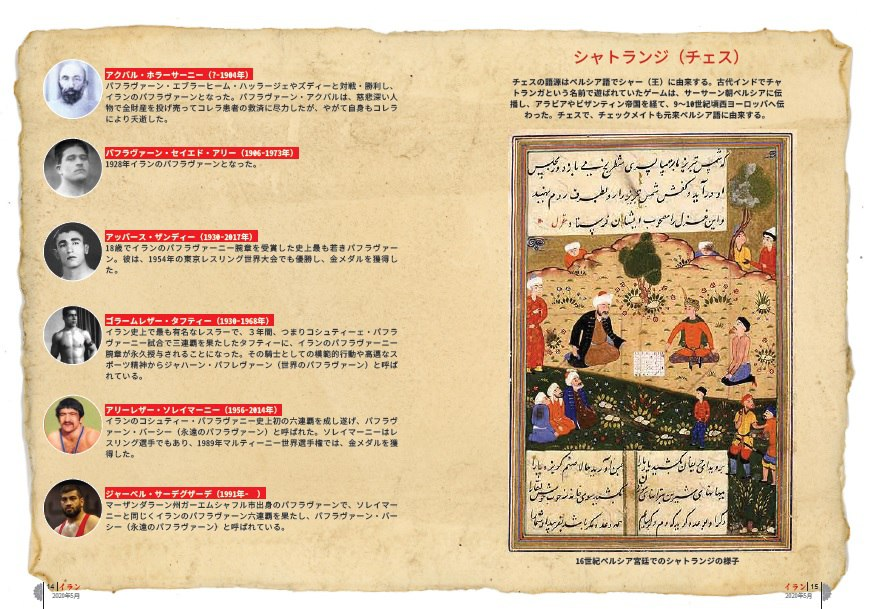 アクバル・ホラーサーニー（?-1904年）
パフラヴァーン・エブラーヒーム・ハッラージェヤズディーと対戦・勝利し、
イランのパフラヴァーンとなった。パフラヴァーン・アクバルは、慈悲深い人
物で全財産を投げ売ってコレラ患者の救済に尽力したが、やがて自身もコレラ
により夭逝した。
パフラヴァーン・セイエド・アリー（1906-1973年）
1928年イランのパフラヴァーンとなった。
アッバース・ザンディー（1930-2017年）
18歳でイランのパフラヴァーニー腕章を受賞した史上最も若きパフラヴァー
ン。彼は、1954年の東京レスリング世界大会でも優勝し、金メダルを獲得し
た。
ゴラームレザー・タフティー（1930-1968年）
イラン史上で最も有名なレスラーで、３年間、つまりコシュティーェ・パフラ
ヴァーニー試合で三連覇を果たしたタフティーに、イランのパフラヴァーニー
腕章が永久授与されることになった。その騎士としての模範的行動や高邁なス
ポーツ精神からジャハーン・パフレヴァーン（世界のパフラヴァーン）と呼ば
れている。
アリーレザー・ソレイマーニー（1956-2014年）
イランのコシュティー・パフラヴァーニー史上初の六連覇を成し遂げ、パフラヴ
ァーン・バーシー（永遠のパフラヴァーン）と呼ばれた。ソレイマーニーはレ
スリング選手でもあり、1989年マルティーニー世界選手権では、金メダルを獲
得した。
ジャーベル・サーデグザーデ（1991年-　）
マーザンダラーン州ガーエムシャフル市出身のパフラヴァーンで、ソレイマー
ニーと同じくイランのパフラヴァーン六連覇を果たし、パフラヴァーン・バー
シー（永遠のパフラヴァーン）と呼ばれている。
14 イラン
2020年5月
シャトランジ（チェス）
チェスの語源はペルシア語でシャー（王）に由来する。古代インドでチャ
トランガという名前で遊ばれていたゲームは、サーサーン朝ペルシアに伝
播し、アラビアやビザンティン帝国を経て、9〜10世紀頃西ヨーロッパへ伝
わった。チェスで、チェックメイトも元来ペルシア語に由来する。
16世紀ペルシア宮廷でのシャトランジの様子
イラン 15
2020年5月